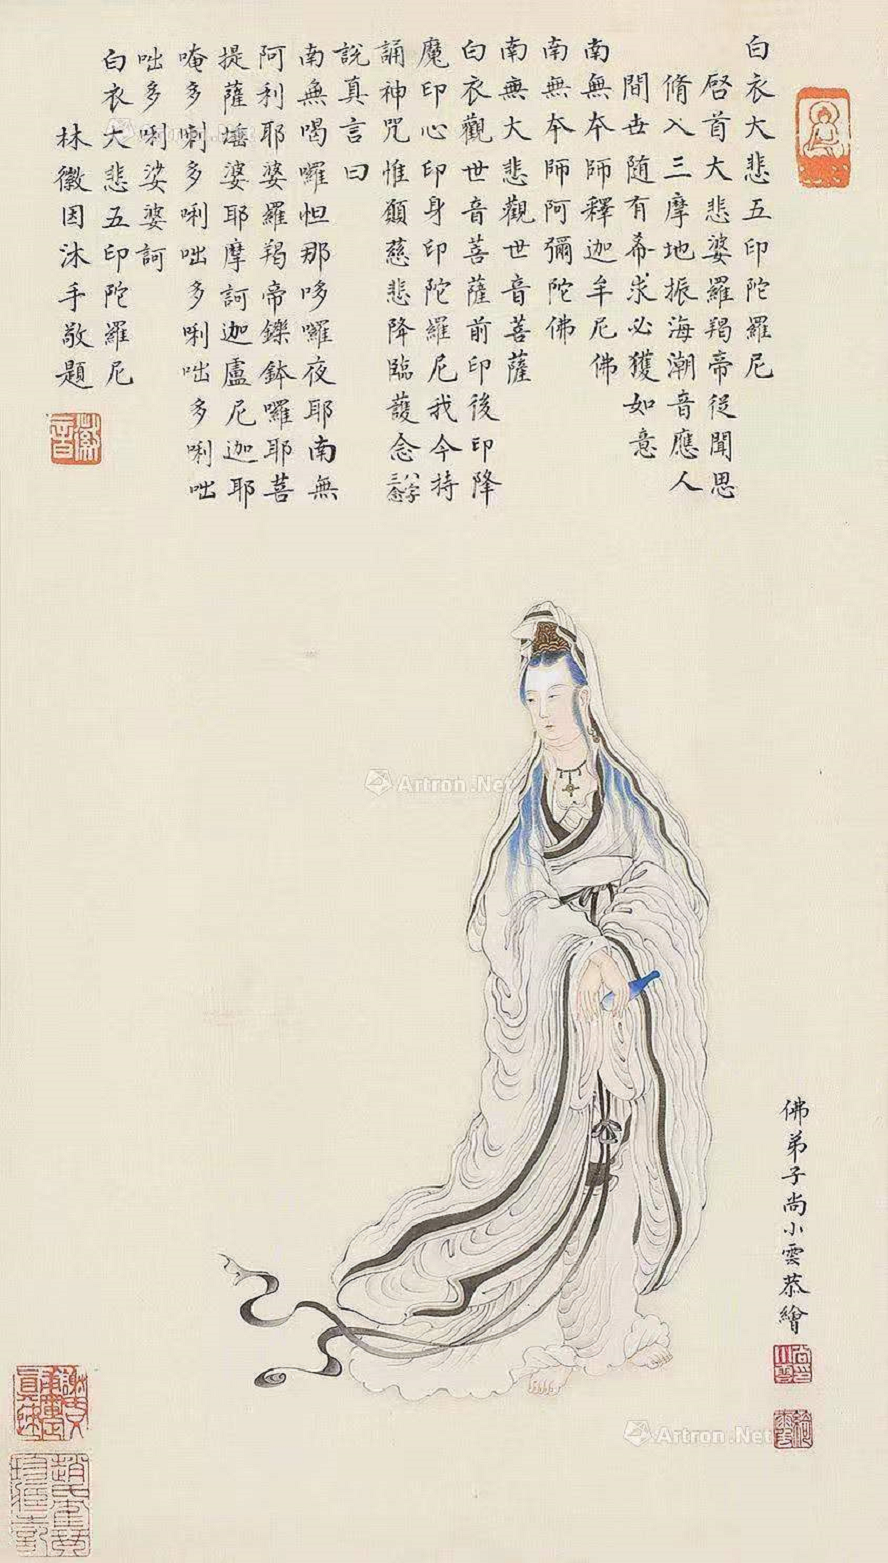 白衣大悲五印陀羅尼
啓首大悲婆羅羯帝從聞思
脩入三摩地振海潮音應人
間世随有希求必獲如意
南無本師釋迦牟尼佛
南無本師阿彌陀佛
南無大悲觀世音菩薩
白衣觀世音菩薩前印後印降
魔印心印身印陀羅尼我今持
誦神咒惟願慈悲降臨護念
說真言曰
南無喝囉怛那哆囉夜耶南無
阿利耶婆羅羯帝鑠鉢囉耶菩
提薩埵婆耶摩訶迦盧尼迦耶
唵多唎多唎咄多唎咄多唎咄
咄多唎娑婆訶
白衣大悲五印陀羅尼
林徽因沐手敬題
佛弟子尚小雲恭繪
Artron.Net
Artron.Net